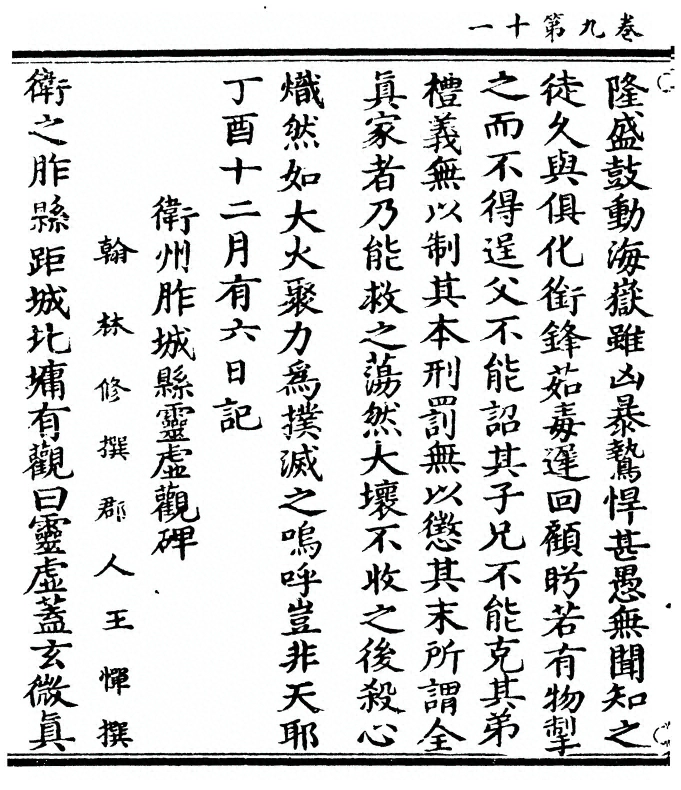 卷九第十一
隆盛鼓動海嶽雖凶暴鷙悍甚愚無聞知之
徒久與俱化銜鋒茹毒遲回顧眄若有物掣
之而不得逞父不能詔其子兄不能克其弟
禮義無以制其本刑罰無以懲其末所謂全
眞家者乃能救之蕩然大壞不收之後殺心
熾然如大火聚力爲撲滅之嗚呼豈非天耶
丁酉十二月有六日記
衛州胙城縣靈虛觀碑
翰林修撰郡人王惲撰
衛之胙縣距城北墉有觀曰靈虛蓋玄微眞